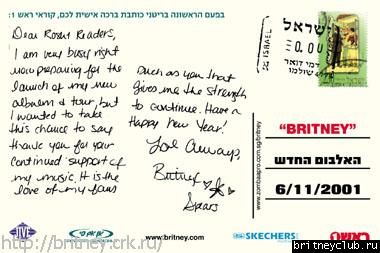 בפעם הראשונה בריטני כותבת ברכה אישית לכם, קוראי ראש 1:
Dear Rosh1 Readers,
I am very busy right
now preparing for the
launch of my new
album & tour, but
I wanted to take
this chance to say
thank you for your
continued support of
my music. It is the
love of my fans
such as you that
gives me the strength
to continue. Have a
Happy New Year!
Love Always,
Britney
Spears
ישראל
ISRAEL
0.00
דמי דואר
שולמו
"BRITNEY"
האלבום החדש
6/11/2001
www.zombaapro.com.sg/britney
JIVE
www.britney.com
SKECHERS
ראש1
http://britney.crk.ru/
britneyclub.ru